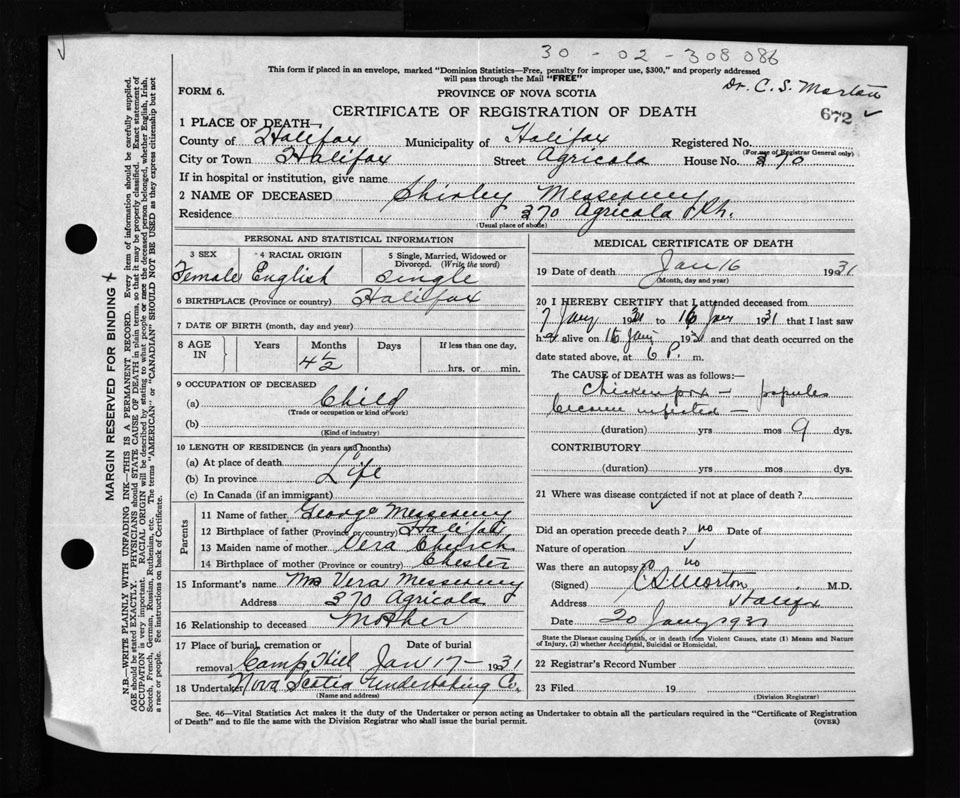 30 - 02 - 308086
This form if placed in an envelope, marked "Dominion Statistics—Free, penalty for improper use, $300," and properly addressed
will pass through the Mail "FREE"
Dr. C. S. Morton
FORM 6.
PROVINCE OF NOVA SCOTIA
CERTIFICATE OF REGISTRATION OF DEATH
672
1 PLACE OF DEATH—
County of Halifax Municipality of Halifax Registered No.
(For use of Registrar General only)
City or Town Halifax Street Agricola House No. 370
If in hospital or institution, give name
2 NAME OF DECEASED Shirley Messervey
Residence 370 Agricola
(Usual place of abode)
PERSONAL AND STATISTICAL INFORMATION
3 SEX 4 RACIAL ORIGIN 5 Single, Married, Widowed or Divorced. (Write the word)
Female English Single
6 BIRTHPLACE (Province or country) Halifax
7 DATE OF BIRTH (month, day and year)
8 AGE IN Years Months Days If less than one day,
4½ hrs. or min.
9 OCCUPATION OF DECEASED
(a) Child
(Trade or occupation or kind of work)
(b)
(Kind of industry)
10 LENGTH OF RESIDENCE (in years and months)
(a) At place of death
(b) In province Life
(c) In Canada (if an immigrant)
Parents
11 Name of father George Messervey
12 Birthplace of father (Province or country) Halifax
13 Maiden name of mother Vera Church
14 Birthplace of mother (Province or country) Chester
15 Informant's name Mrs Vera Messervey
Address 370 Agricola
16 Relationship to deceased Mother
17 Place of burial, cremation or removal Date of burial
Camp Hill Jan 17 — 1931
18 Undertaker Nova Scotia Undertaking Co.
(Name and address)
MEDICAL CERTIFICATE OF DEATH
19 Date of death Jan 16 1931
(Month, day and year)
20 I HEREBY CERTIFY that I attended deceased from
7 Jany 1931 to 16 Jany 1931 that I last saw
her alive on 16 Jany 1931 and that death occurred on the
date stated above, at 6 P. m.
The CAUSE of DEATH was as follows:
Chickenpox — papules
become infected —
(duration) yrs mos 9 dys.
CONTRIBUTORY
(duration) yrs mos dys.
21 Where was disease contracted if not at place of death?
Did an operation precede death? no Date of
Nature of operation
Was there an autopsy? no
(Signed) C S Morton M.D.
Address Halifax
Date 20 Jany 1931
State the Disease causing Death, or in death from Violent Causes, state (1) Means and Nature
of Injury, (2) whether Accidental, Suicidal or Homicidal.
22 Registrar's Record Number
23 Filed 19
(Division Registrar)
Sec. 46—Vital Statistics Act makes it the duty of the Undertaker or person acting as Undertaker to obtain all the particulars required in the "Certificate of Registration
of Death" and to file the same with the Division Registrar who shall issue the burial permit.
(OVER)
MARGIN RESERVED FOR BINDING
N.B.—WRITE PLAINLY WITH UNFADING INK—THIS IS A PERMANENT RECORD. Every item of information should be carefully supplied.
AGE should be stated EXACTLY. PHYSICIANS should STATE CAUSE OF DEATH in plain terms, so that it may be properly classified. Exact statement of
OCCUPATION is very important. RACIAL ORIGIN will be described by stating to what people or race the deceased person belonged, whether English, Irish,
Scotch, French, German, Russian, Ruthenian, etc. The terms "AMERICAN" or "CANADIAN" SHOULD NOT BE USED as they express citizenship but not
a race or people. See instructions on back of Certificate.